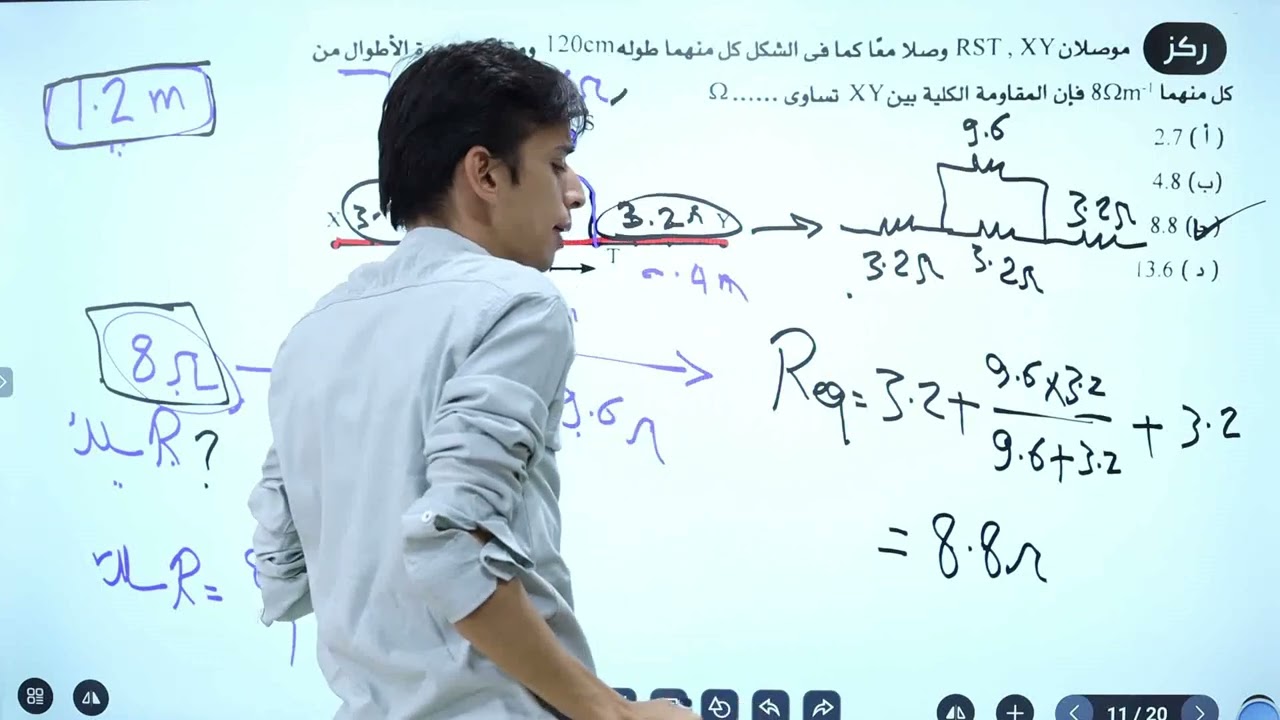 ركز
موصلان RST , XY وصلا معًا كما فى الشكل كل منهما طوله 120cm الأطوال من
كل منهما 8Ωm⁻¹ فإن المقاومة الكلية بين XY تساوى ...... Ω
(أ) 2.7
(ب) 4.8
8.8
(د) 13.6
1.2 m
Ω
S
X
3.2Ω
Y
T
0.4 m
9.6
3.2Ω
3.2Ω
3.2Ω
8Ω
9.6Ω
R?
R=
Req = 3.2 + 9.6×3.2 / 9.6+3.2 + 3.2
= 8.8Ω
11/20